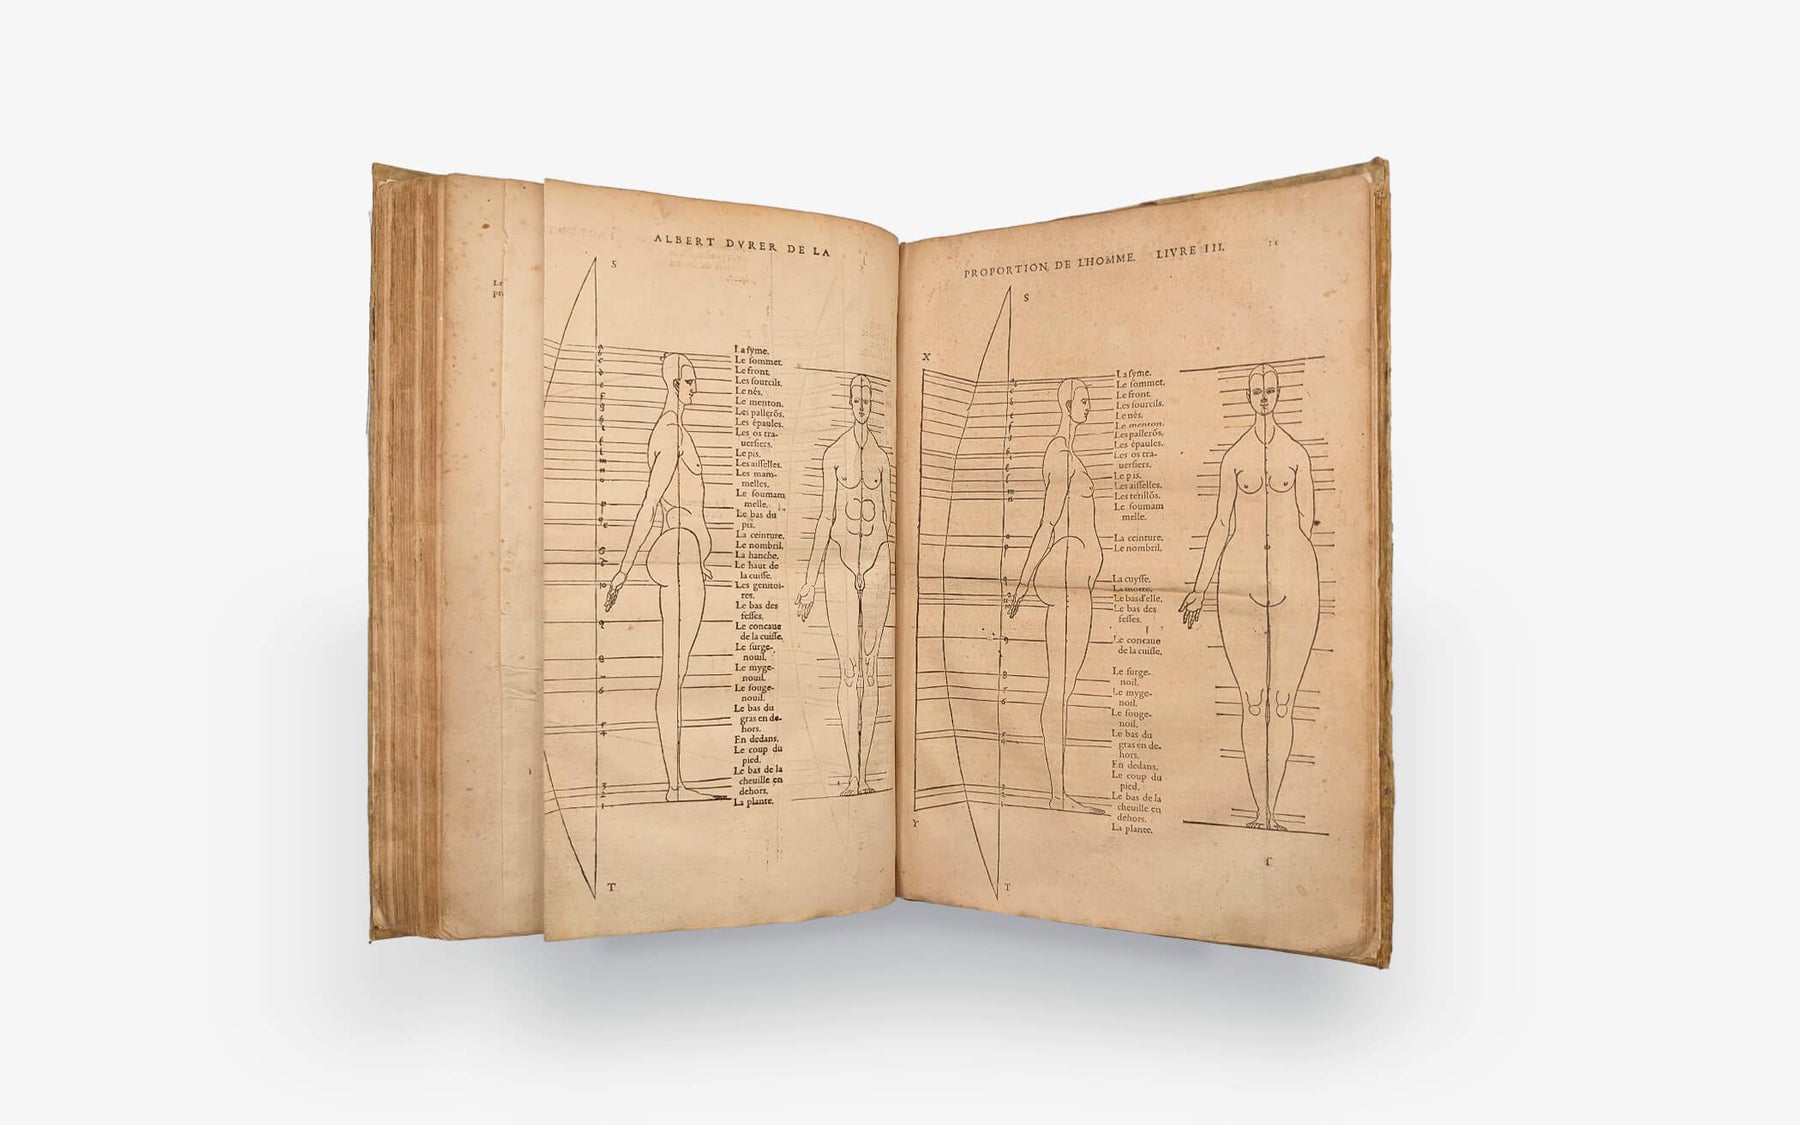 ALBERT DVRER DE LA
S
La syme.
Le sommet.
Le front.
Les sourcils.
Le nés.
Le menton.
Les pallerõs.
Les épaules.
Les os tra-
uersiers.
Le pis.
Les aisselles.
Les mam-
melles.
Le soumam
melle.
Le bas du
pis.
La ceinture.
Le nombril.
La hanche.
Le haut de
la cuisse.
Les genitoi-
res.
Le bas des
fesses.
Le concaue
de la cuisse.
Le surge-
nouil.
Le myge-
nouil.
Le souge-
nouil.
Le bas du
gras en de-
hors.
En dedans.
Le coup du
pied.
Le bas de la
cheuille en
dehors.
La plante.
T
PROPORTION DE L'HOMME. LIVRE III.
S
X
La syme.
Le sommet.
Le front.
Les sourcils.
Le nés.
Le menton.
Les pallerõs.
Les épaules.
Les os tra-
uersiers.
Le pis.
Les aisselles.
Les tetillõs.
Le soumam
melle.
La ceinture.
Le nombril.
La cuysse.
La motte.
Le bas d'elle.
Le bas des
fesses.
Le concaue
de la cuisse.
Le surge-
noil.
Le myge-
noil.
Le souge-
noil.
Le bas du
gras en de-
hors.
En dedans.
Le coup du
pied.
Le bas de la
cheuille en
dehors.
La plante.
Y
T